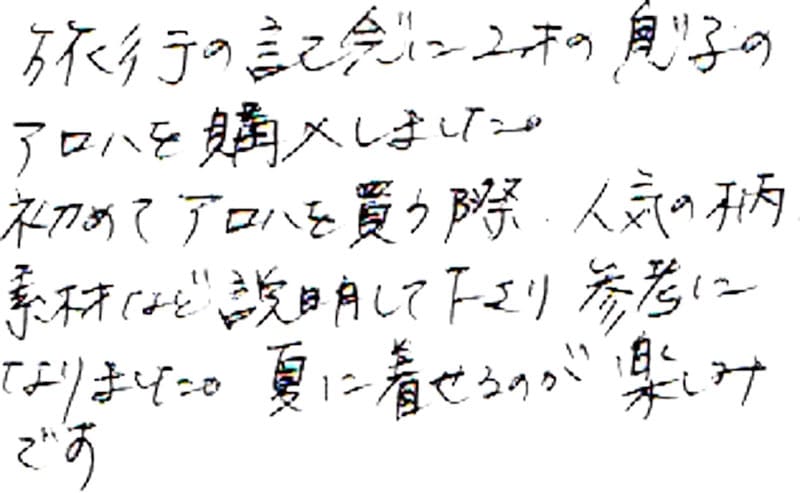 旅行の記念に2才の息子の
アロハを購入しました。
初めてアロハを買う際、人気の柄、
素材など説明して下さり 参考に
なりました。夏に着せるのが楽しみ
です